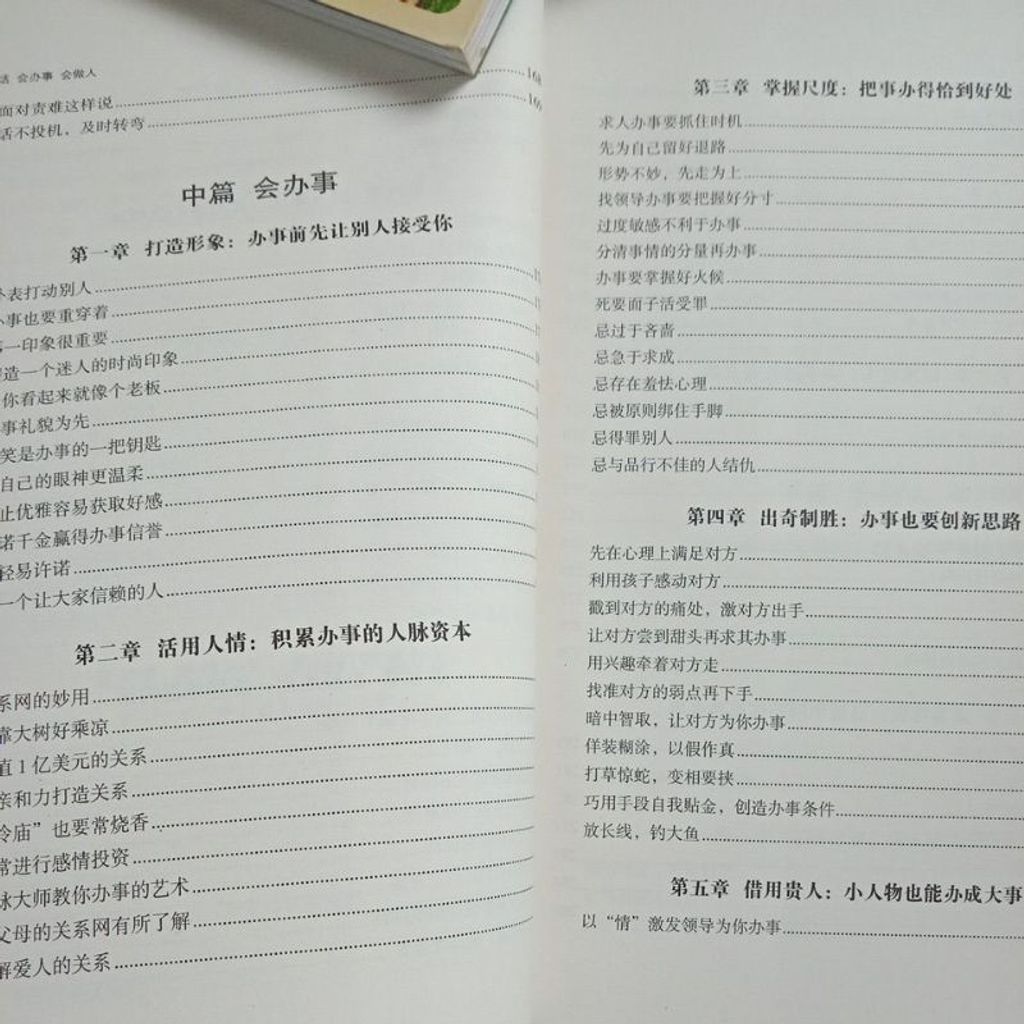 话 会办事 会做人
面对责难这样说 168
话不投机，及时转弯 169
中篇 会办事
第一章 打造形象：办事前先让别人接受你
外表打动别人
办事也要重穿着
第一印象很重要
造一个迷人的时尚印象
你看起来就像个老板
事礼貌为先
笑是办事的一把钥匙
自己的眼神更温柔
止优雅容易获取好感
诺千金赢得办事信誉
轻易许诺
一个让大家信赖的人
第二章 活用人情：积累办事的人脉资本
系网的妙用
靠大树好乘凉
值1亿美元的关系
亲和力打造关系
冷庙”也要常烧香
常进行感情投资
脉大师教你办事的艺术
父母的关系网有所了解
解爱人的关系
第三章 掌握尺度：把事办得恰到好处
求人办事要抓住时机
先为自己留好退路
形势不妙，先走为上
找领导办事要把握好分寸
过度敏感不利于办事
分清事情的分量再办事
办事要掌握好火候
死要面子活受罪
忌过于吝啬
忌急于求成
忌存在羞怯心理
忌被原则绑住手脚
忌得罪别人
忌与品行不佳的人结仇
第四章 出奇制胜：办事也要创新思路
先在心理上满足对方
利用孩子感动对方
戳到对方的痛处，激对方出手
让对方尝到甜头再求其办事
用兴趣牵着对方走
找准对方的弱点再下手
暗中智取，让对方为你办事
佯装糊涂，以假作真
打草惊蛇，变相要挟
巧用手段自我贴金，创造办事条件
放长线，钓大鱼
第五章 借用贵人：小人物也能办成大事
以“情”激发领导为你办事